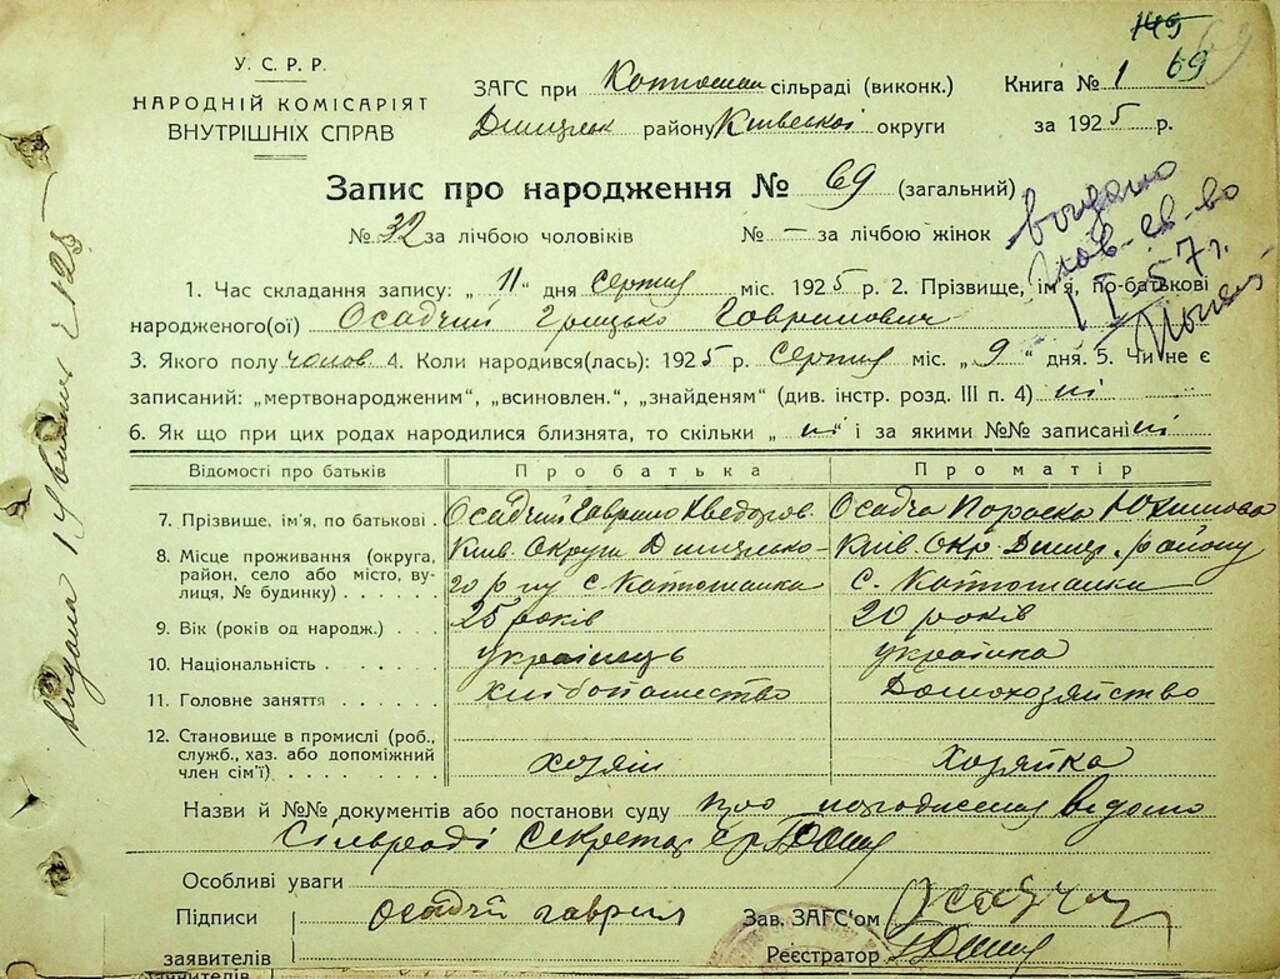 145
69
У. С. Р. Р.
НАРОДНІЙ КОМІСАРІЯТ
ВНУТРІШНІХ СПРАВ
ЗАГС при сільраді (виконк.)
району Київської округи
Книга № 1
за 1925 р.
Запис про народження № 69 (загальний)
№ 32 за лічбою чоловіків № — за лічбою жінок
1. Час складання запису: „ 11 “ дня серпня міс. 1925 р. 2. Прізвище, ім'я, по-батькові
народженого(ої) Осадчий Грицько Гаврилович
3. Якого полу чолов. 4. Коли народився(лась): 1925 р. серпня міс. „ 9 “ дня. 5. Чи не є
записаний: „мертвонародженим“, „всиновлен.“, „знайденям“ (див. інстр. розд. III п. 4) ні
6. Як що при цих родах народилися близнята, то скільки „ ні “ і за якими №№ записані ні
Відомості про батьків Про батька Про матір
7. Прізвище, ім'я, по батькові . Осадчий Гаврило Хведоров. Осадча Параска Юхимова
8. Місце проживання (округа, Київ. Округи Київ. Окр. Димер. району
район, село або місто, ву- го р-ну с. Катюжанка с. Катюжанка
лиця, № будинку) . . . . .
9. Вік (років од народж.) . . . 25 років 20 років
10. Національність . . . . . . українець українка
11. Головне заняття . . . . . . хлібопашество Домохозяйство
12. Становище в промислі (роб.,
служб., хаз. або допоміжний хозяін Хозяйка
член сім'ї) . . . . . . . . .
Назви й №№ документів або постанови суду про народження відомо
Сільраді Секретар
Особливі уваги
Підписи Осадчий Гаврил Зав. ЗАГС'ом Осадчий
заявителів Реєстратор
видана